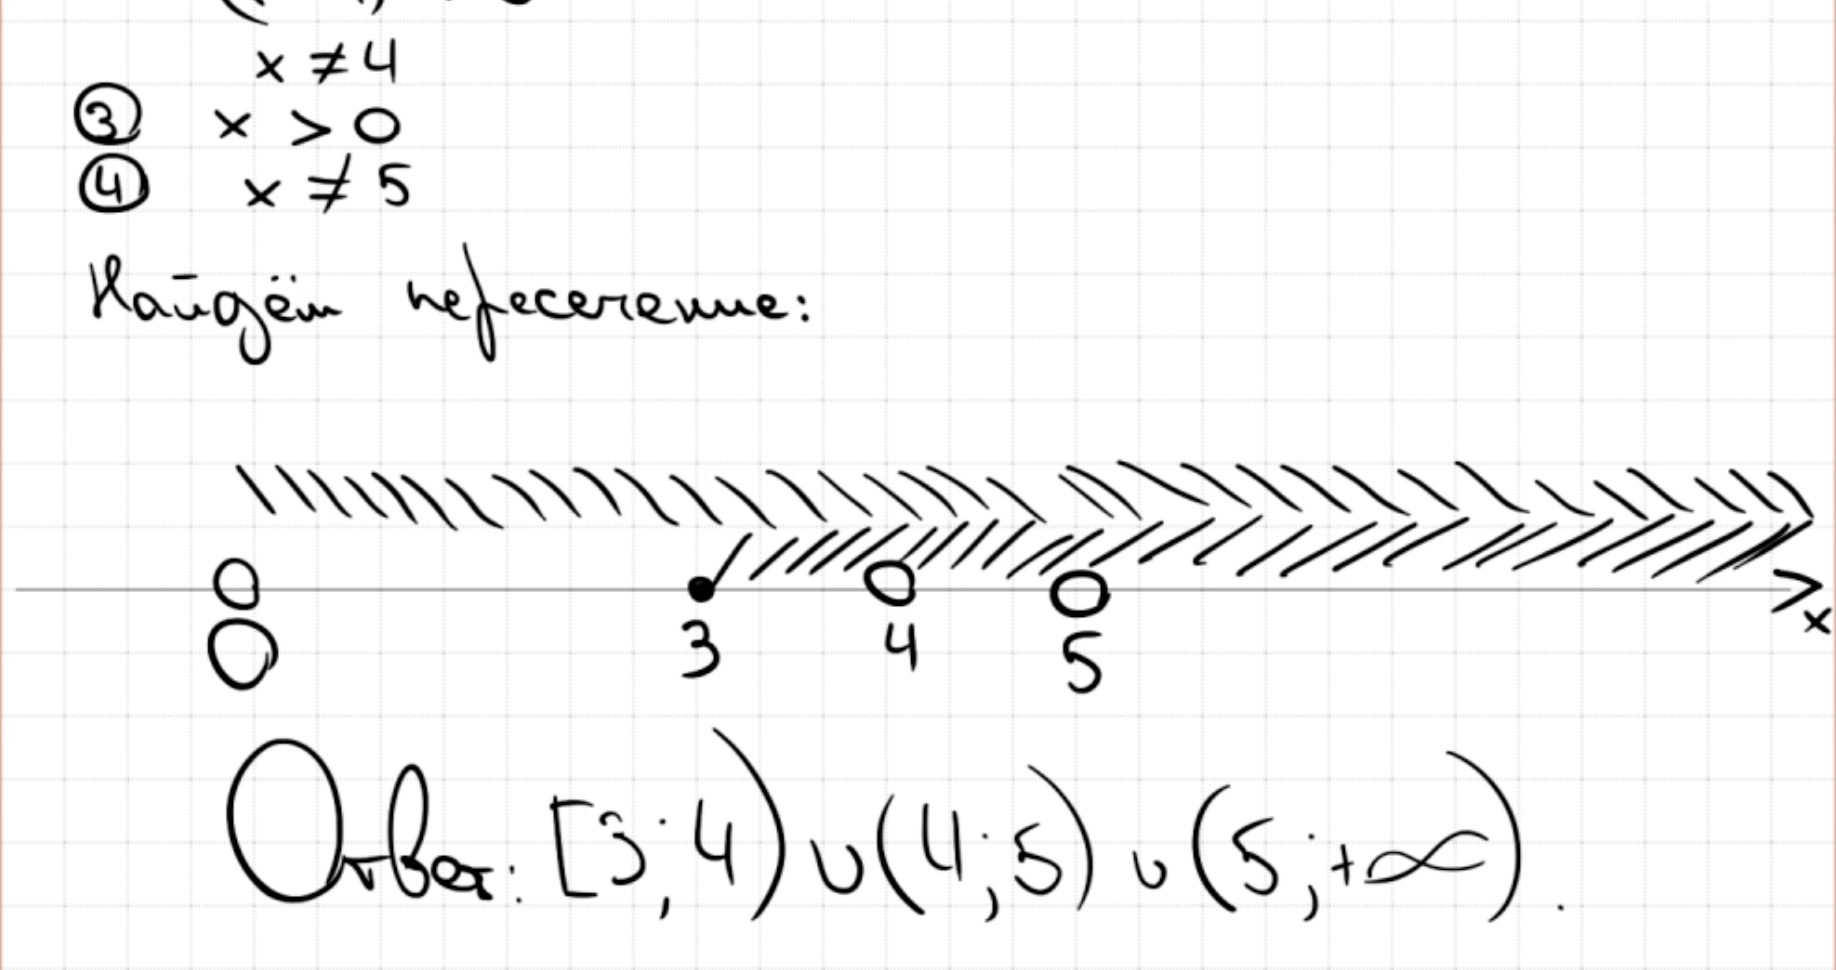 x ≠ 4
③ x > 0
④ x ≠ 5
Найдём пересечение:
0 3 4 5 x
Ответ: [3; 4) ∪ (4; 5) ∪ (5; +∞).